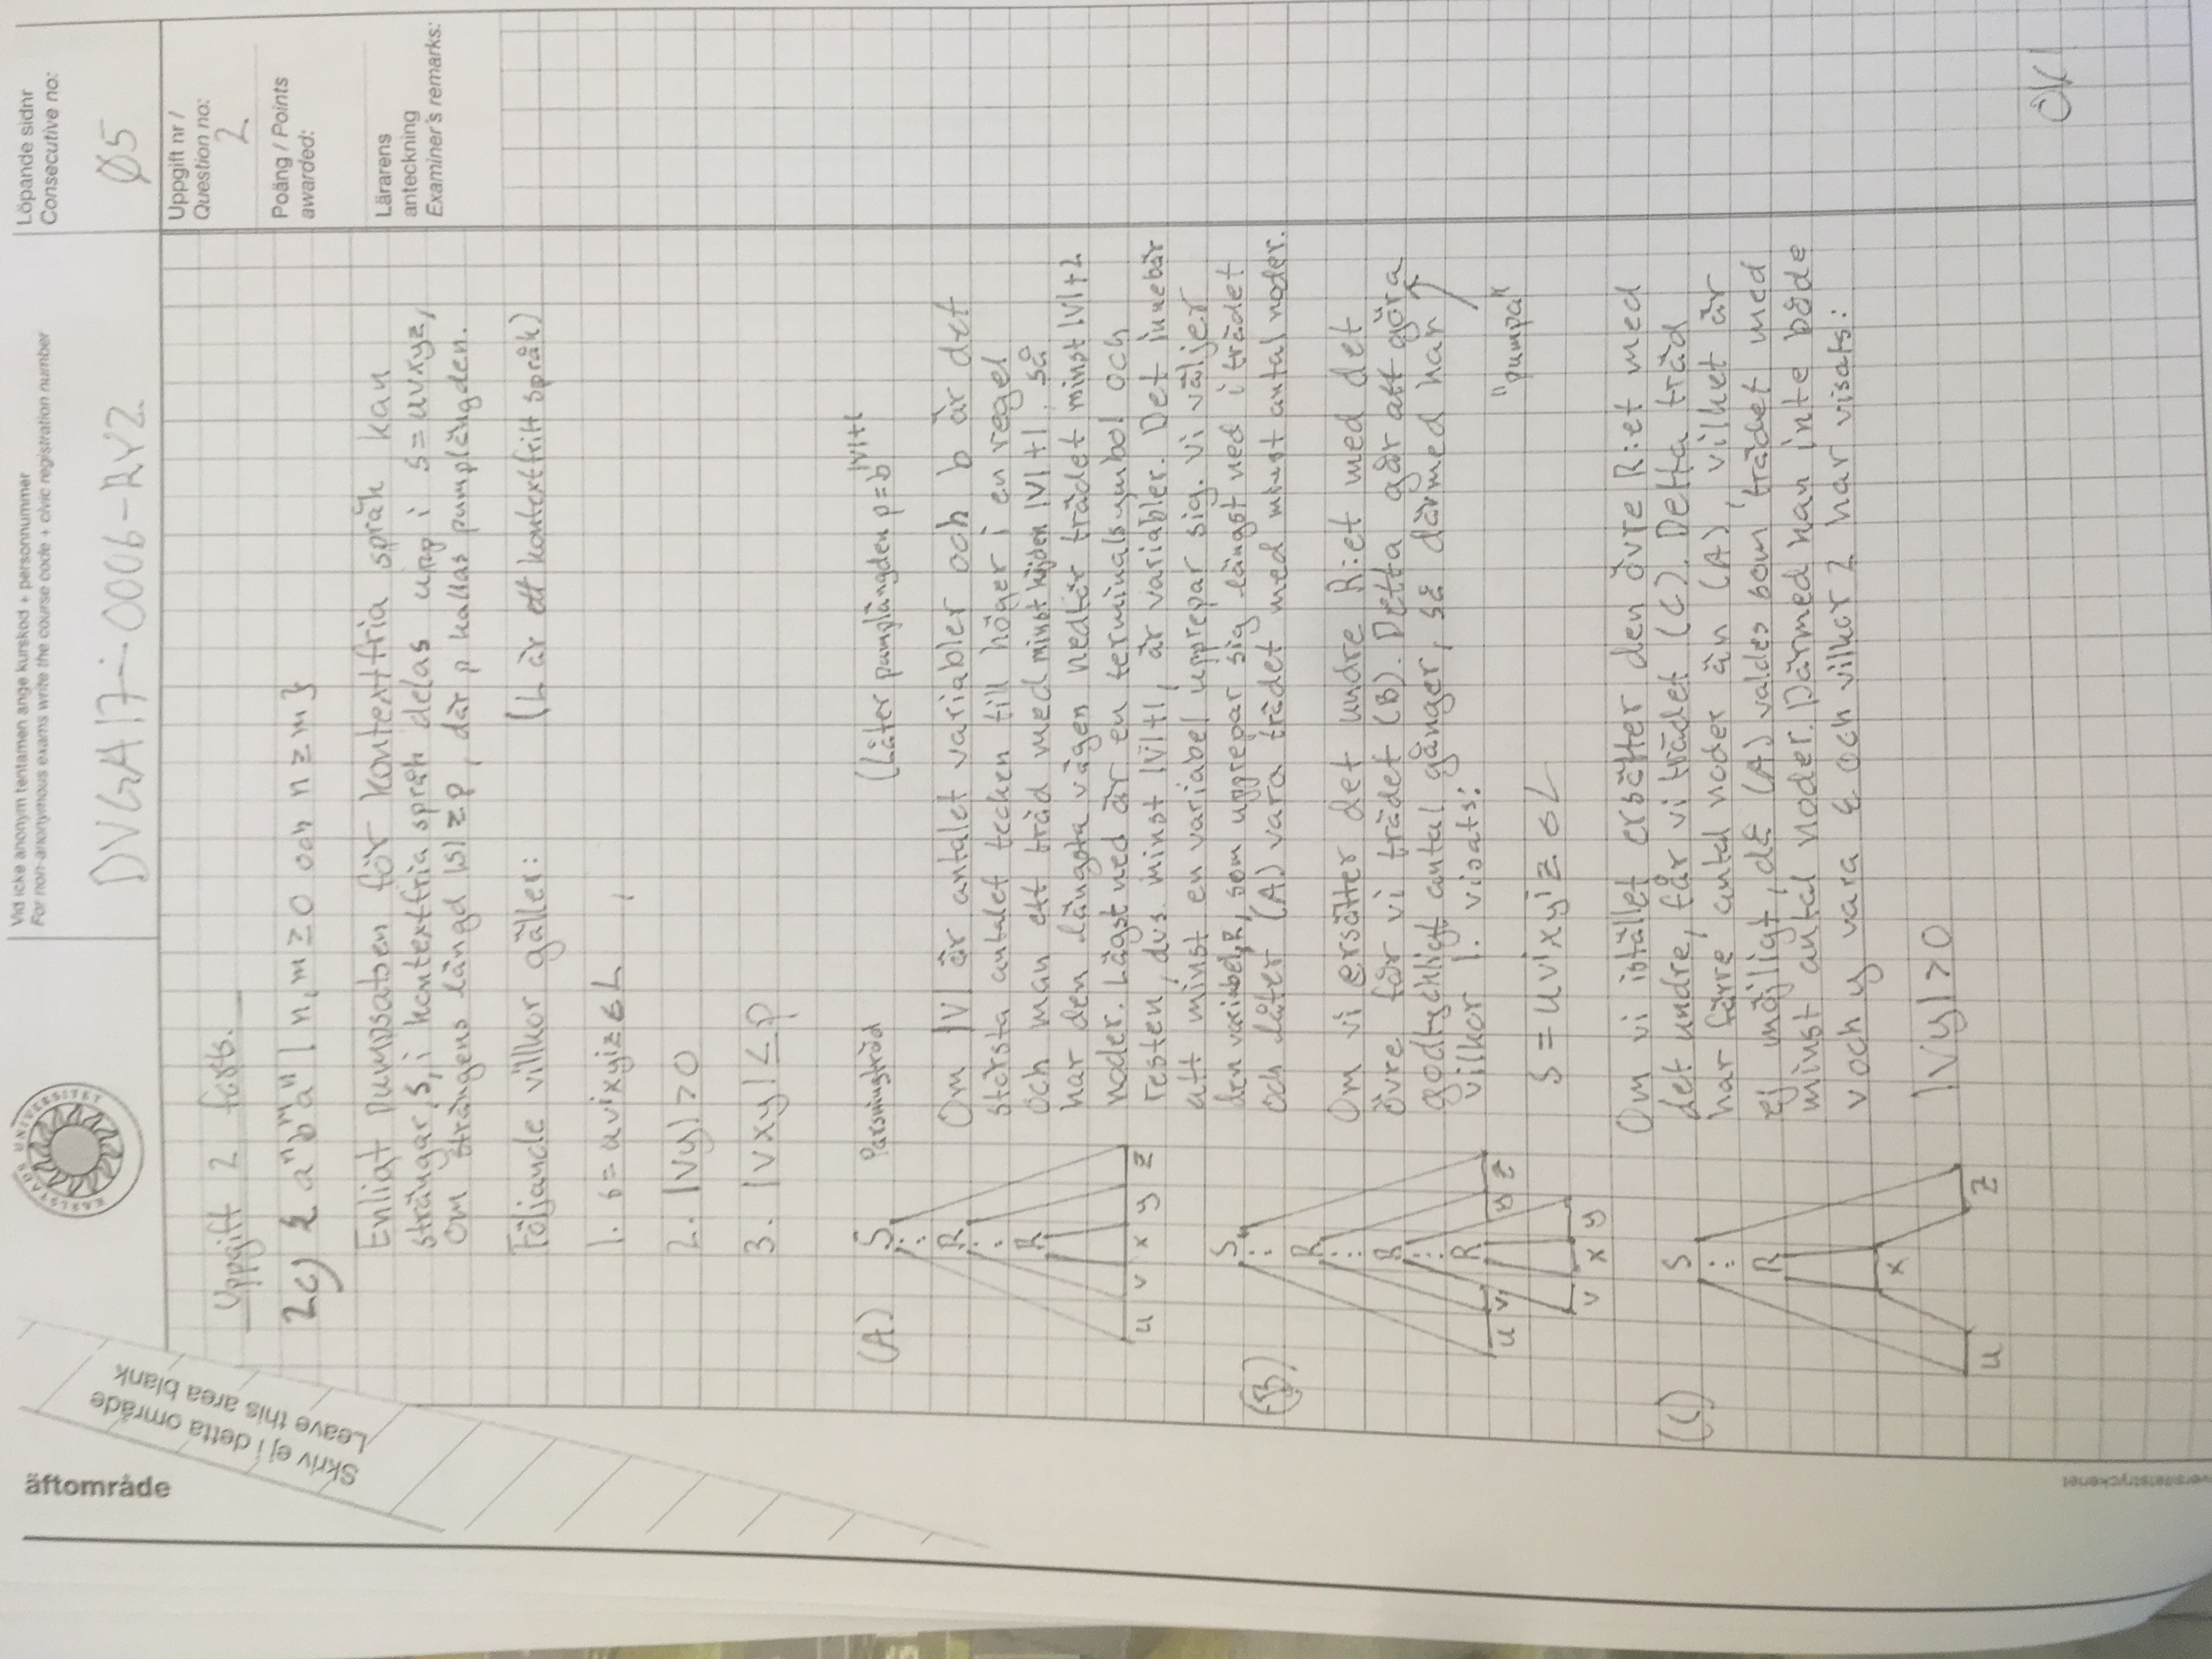 äftområde
Skriv ej i detta område
Leave this area blank
KARLSTADS UNIVERSITET
Vid icke anonym tentamen ange kurskod + personnummer
For non-anonymous exams write the course code + civic registration number
DVGA17-0006-RYZ
Löpande sidnr
Consecutive no:
Ø5
Uppgift nr /
Question no:
2
Poäng / Points
awarded:
Lärarens
anteckning
Examiner's remarks:
Uppgift 2 forts.
2c) { aⁿbᵐaⁿ | n, m ≥ 0 och n ≥ m }
Enligt pumpsatsen för kontextfria språk kan
strängar, s, i kontextfria språk delas upp i s = uvxyz,
om strängens längd |s| ≥ p, där p kallas pumplängden.
Följande villkor gäller: (L är ett kontextfritt språk)
1. s = uvⁱxyⁱz ∈ L
2. |vy| > 0
3. |vxy| ≤ p
(A) S Parsningträd (Låter pumplängden p = b^|V|+1
R
R
u v x y z
Om |V| är antalet variabler och b är det
största antalet tecken till höger i en regel
och man ett träd med minst höjden |V|+1, så
har den längsta vägen nedför trädet minst |V|+2
noder. Lägst ned är en terminalsymbol och
resten, dvs. minst |V|+1, är variabler. Det innebär
att minst en variabel upprepar sig. Vi väljer
den variabel, R, som upprepar sig längst ned i trädet
och låter (A) vara trädet med minst antal noder.
(B) S
R
R
R
u v y z
v x y
Om vi ersätter det undre R:et med det
övre får vi trädet (B). Detta går att göra
godtychligt antal gånger, så därmed har
vilkor 1. visats:
"pumpa"
s = uvⁱxyⁱz ∈ L
Om vi istället ersätter den övre R:et med
det undre, får vi trädet (C). Detta träd
har färre antal noder än (A), vilket är
ej möjligt, då (A) valdes som trädet med
minst antal noder. Därmed kan inte både
v och y vara ε och vilkor 2 har visats:
(C) S
R
x
u z
|vy| > 0
OK!
versitetstryckeriet